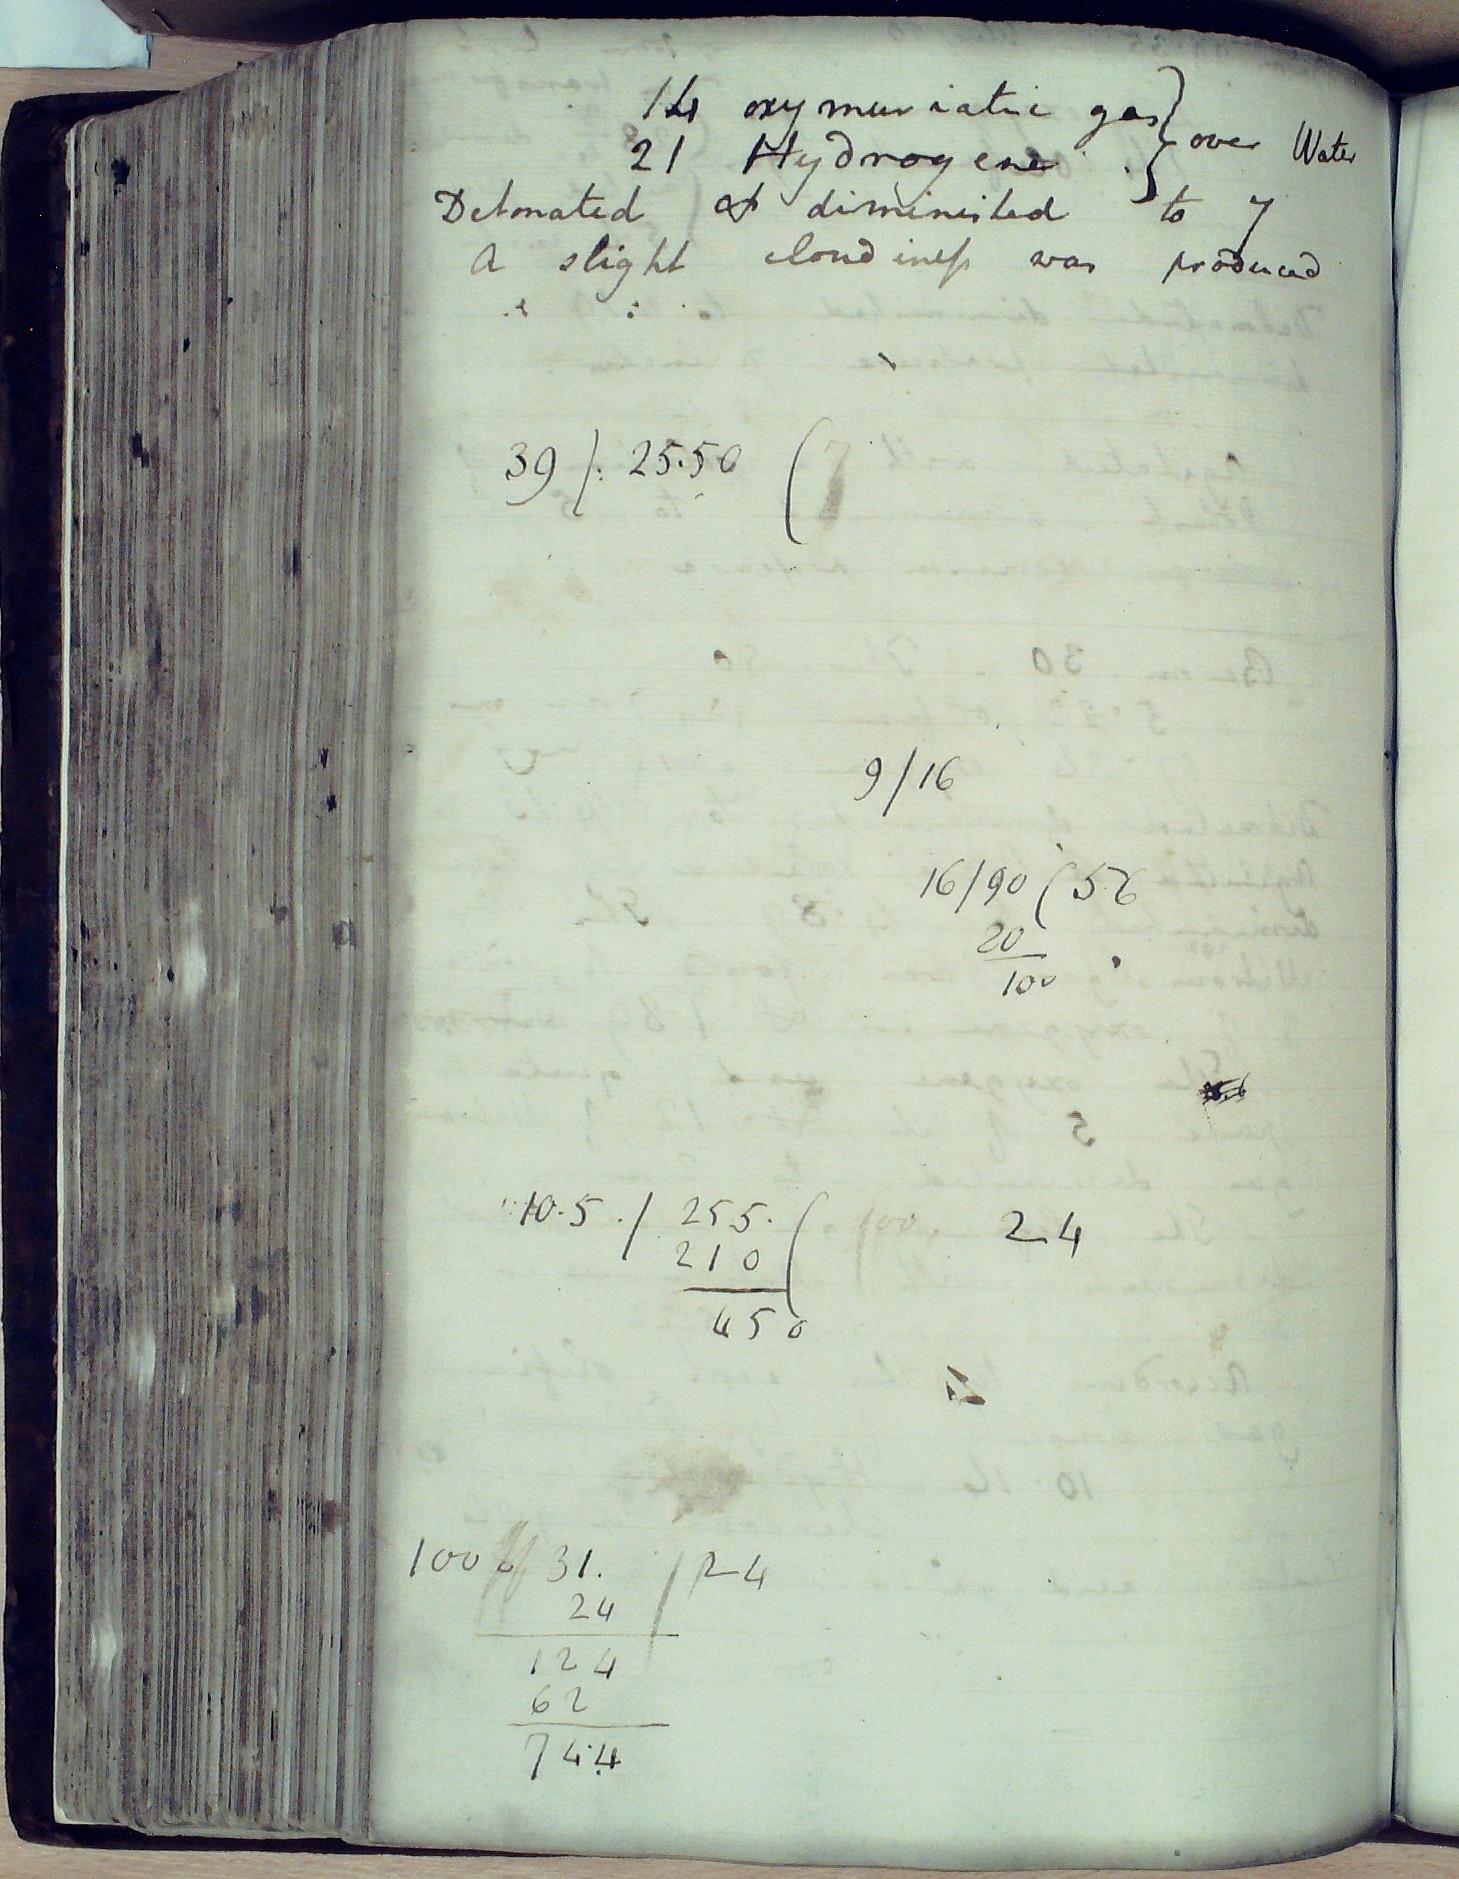 14 oxymuriatic gas } over Water
21 Hydrogene
Detonated & diminished to 7
A slight cloudiness was produced
39 / 25.50 ( 7
9/16
16/90 ( 56
20
100
10.5 / 255. ( 100 24
210
450
100 31. / 24
24
124
62
74.4